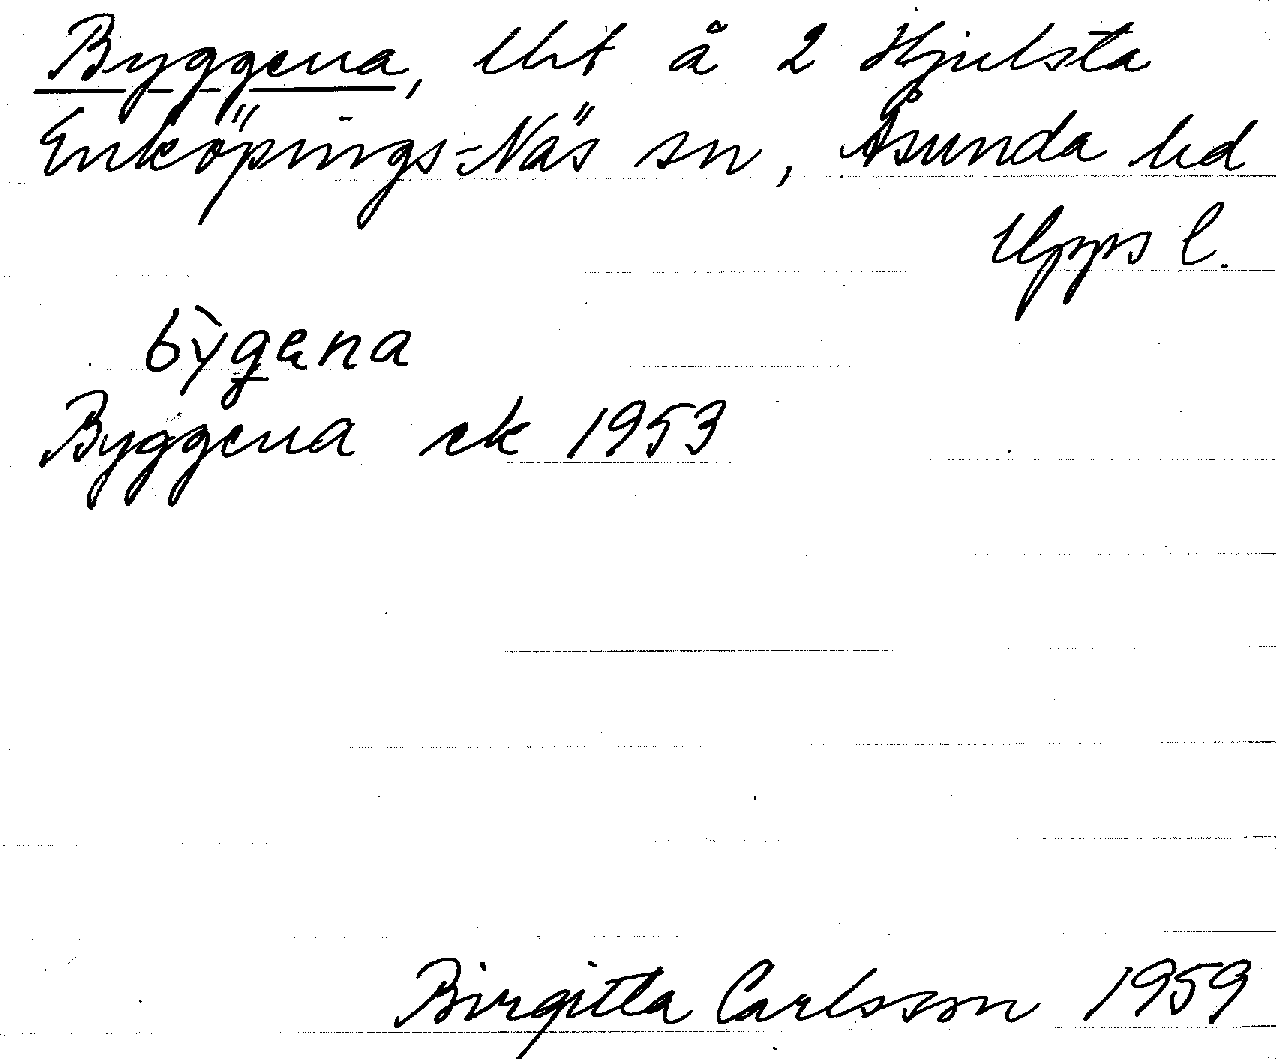 Byggena, lht å 2 Hjulsta
Enköpings-Näs sn, Åsunda hd
Upps l.
bỳgena
Byggena ek 1953
Birgitta Carlsson 1959